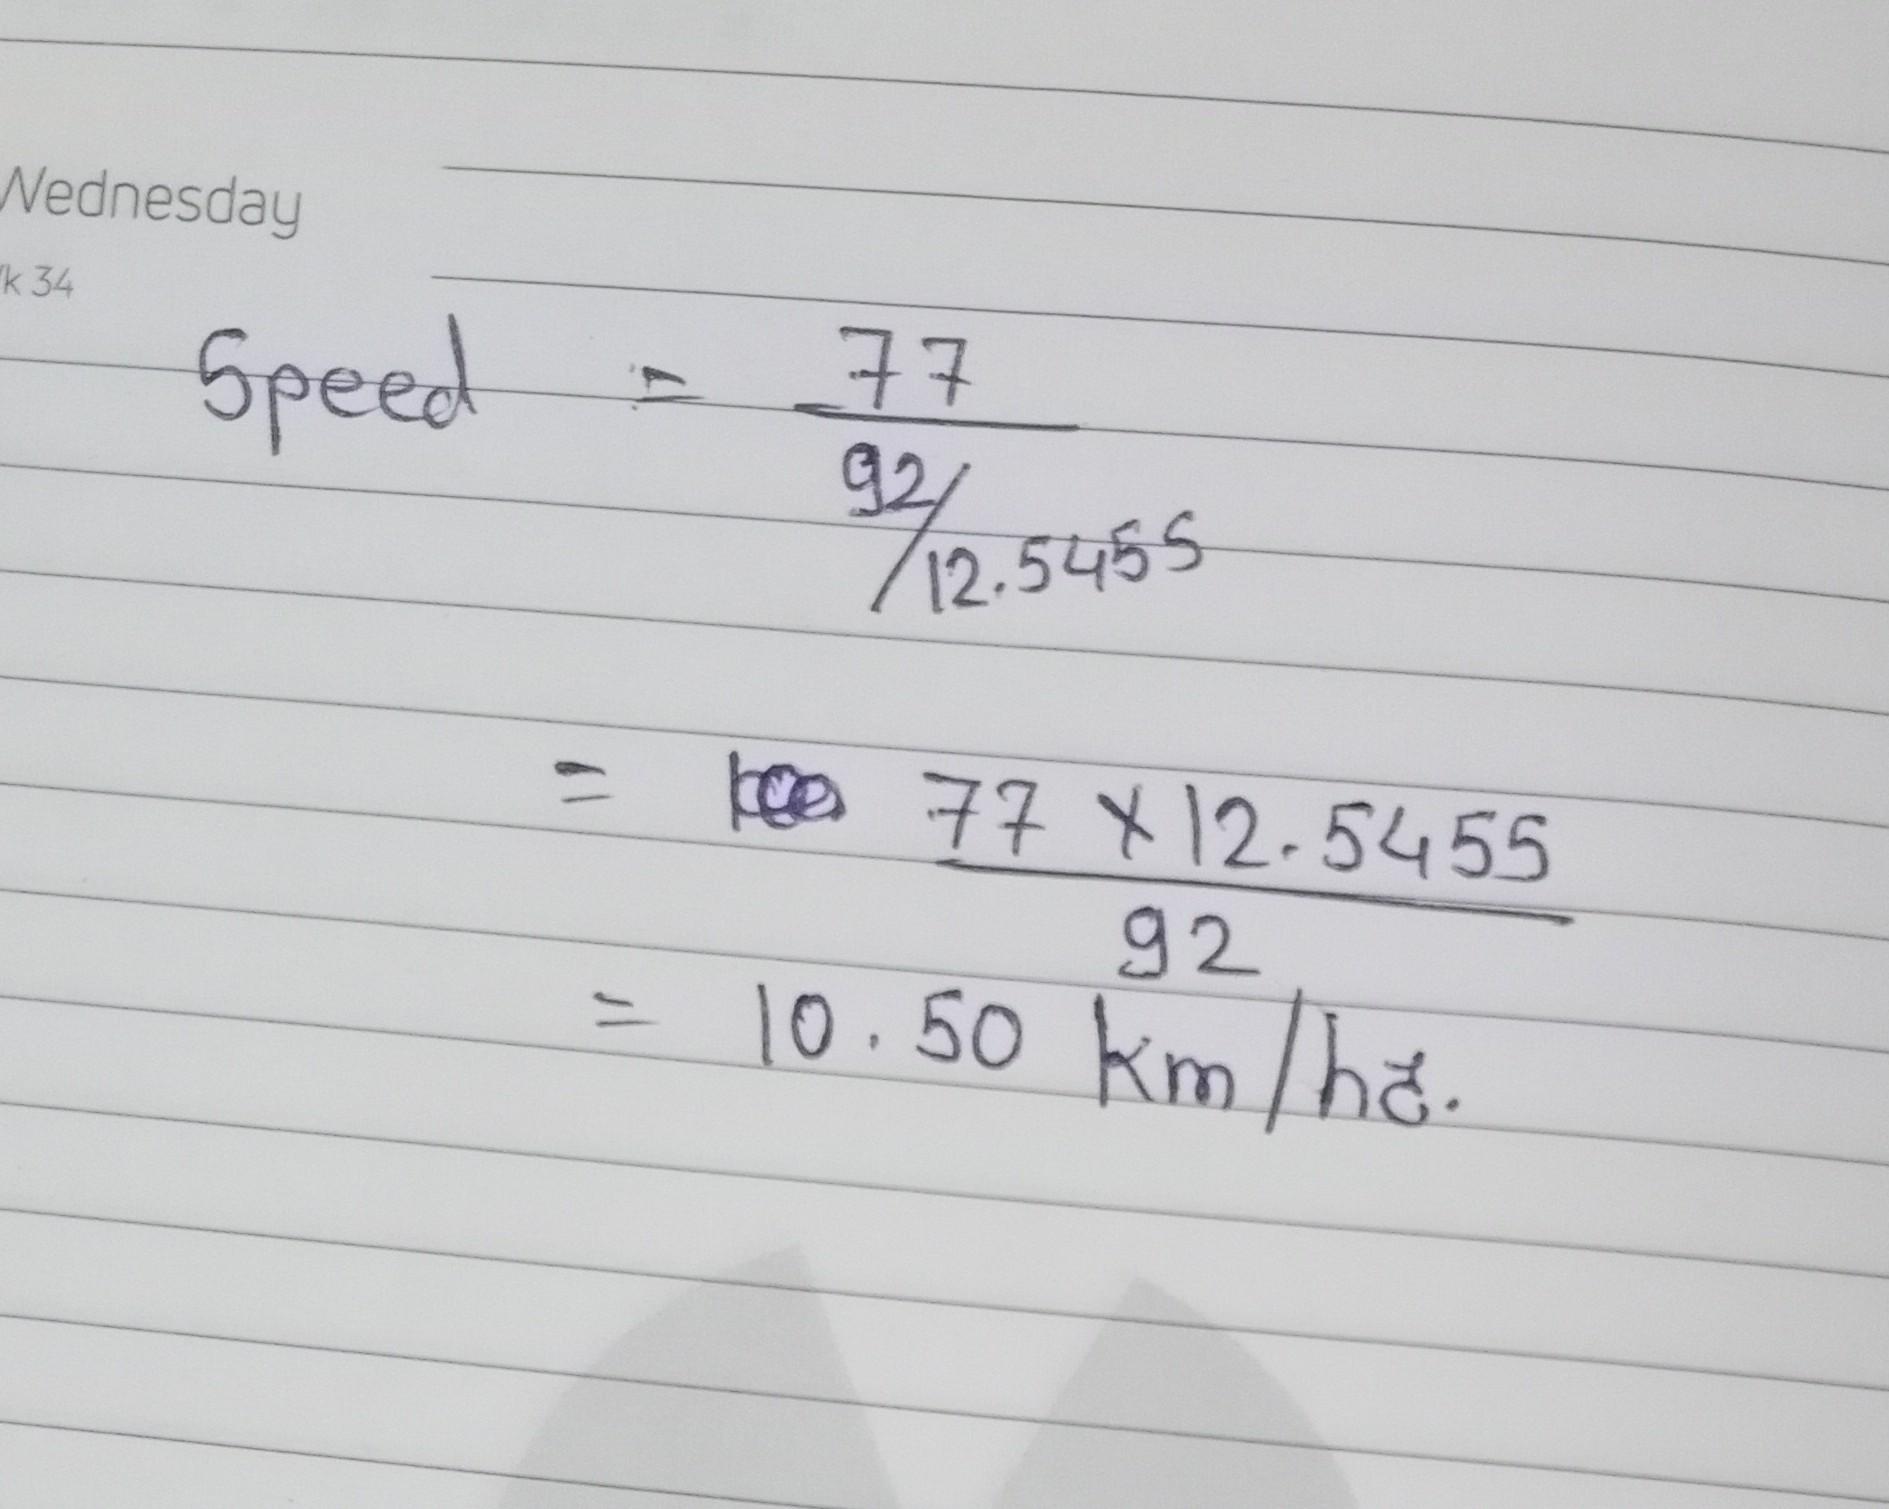 Wednesday
k 34
Speed = 77
92/12.5455
= 77 × 12.5455
92
= 10.50 km/hr.